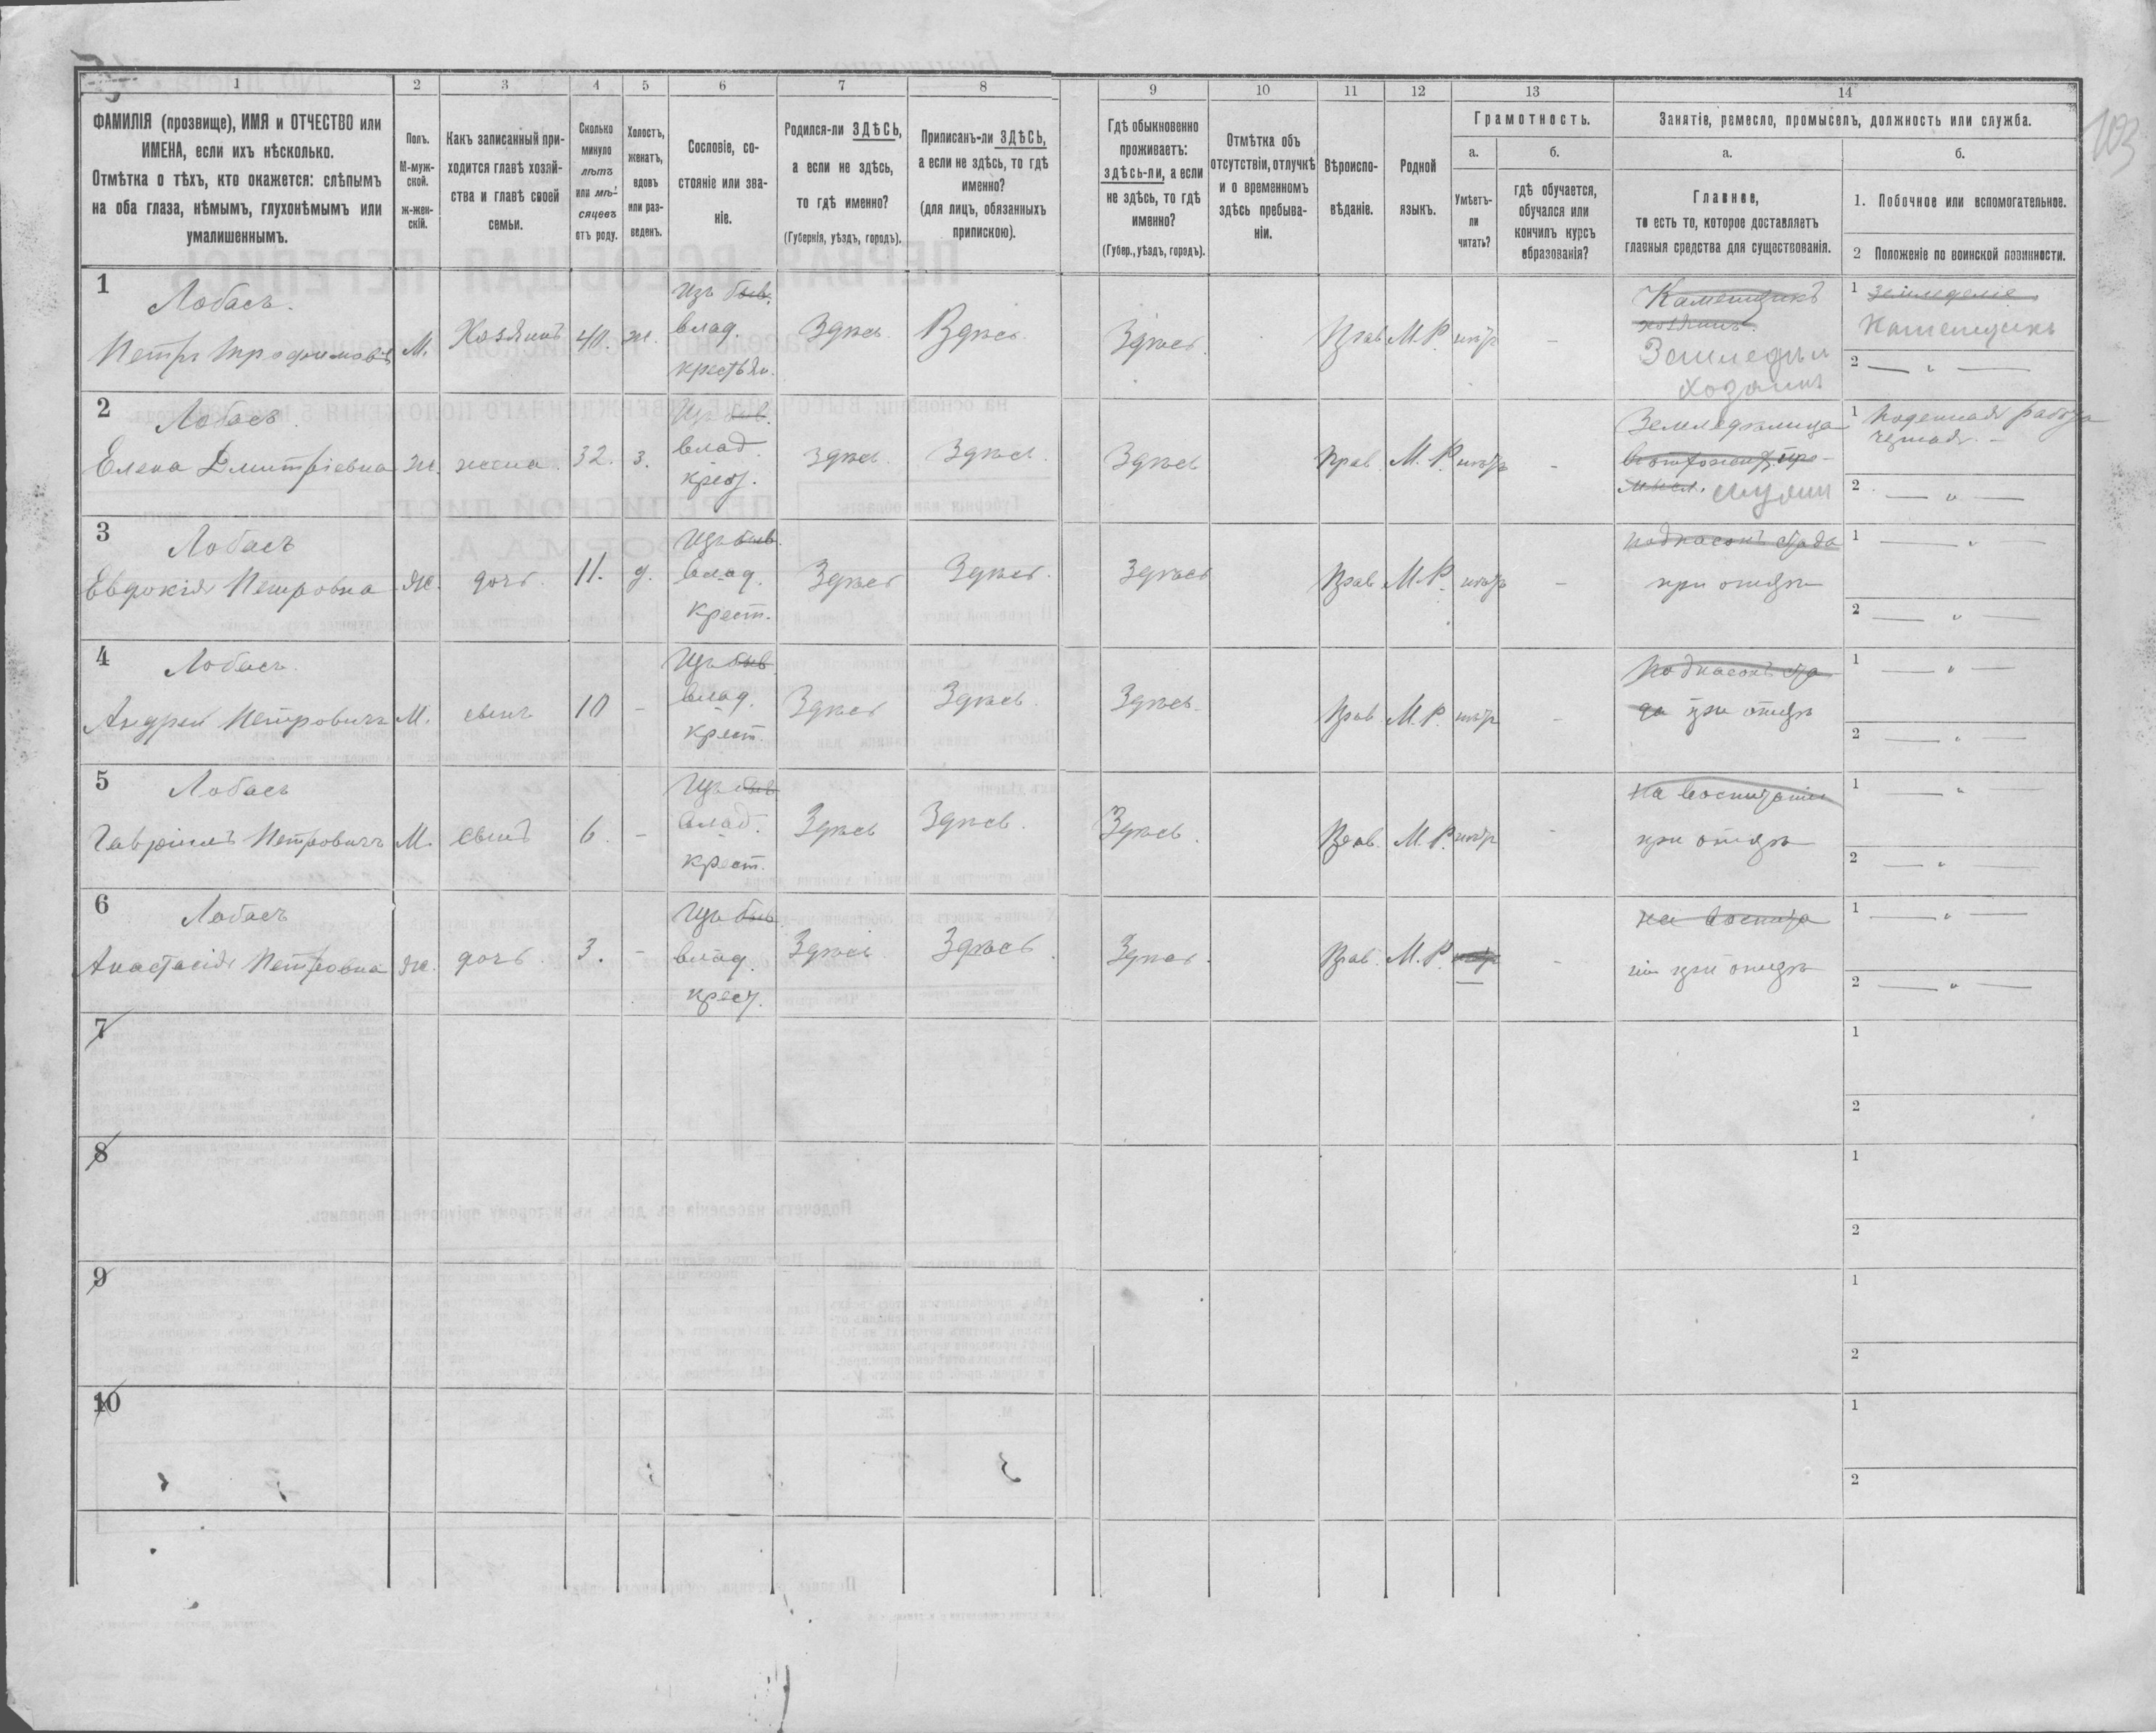 1 2 3 4 5 6 7 8 9 10 11 12 13 14
ФАМИЛІЯ (прозвище), ИМЯ и ОТЧЕСТВО или
ИМЕНА, если ихъ нѣсколько.
Отмѣтка о тѣхъ, кто окажется: слѣпымъ
на оба глаза, нѣмымъ, глухонѣмымъ или
умалишеннымъ.
Полъ.
М-муж-
ской.
ж-жен-
скій.
Какъ записанный при-
ходится главѣ хозяй-
ства и главѣ своей
семьи.
Сколько
минуло
лѣтъ
или мѣ-
сяцевъ
отъ роду.
Холостъ,
женатъ,
вдовъ
или раз-
веденъ.
Сословіе, со-
стояніе или зва-
ніе.
Родился-ли ЗДѢСЬ,
а если не здѣсь,
то гдѣ именно?
(Губернія, уѣздъ, городъ).
Приписанъ-ли ЗДѢСЬ,
а если не здѣсь, то гдѣ
именно?
(для лицъ, обязанныхъ
припискою).
Гдѣ обыкновенно
проживаетъ:
здѣсь-ли, а если
не здѣсь, то гдѣ
именно?
(Губер., уѣздъ, городъ).
Отмѣтка объ
отсутствіи, отлучкѣ
и о временномъ
здѣсь пребыва-
ніи.
Вѣроиспо-
вѣданіе.
Родной
языкъ.
Грамотность.
а.
Умѣетъ-
ли
читать?
б.
гдѣ обучается,
обучался или
кончилъ курсъ
образованія?
Занятіе, ремесло, промыселъ, должность или служба.
а.
Главное,
то есть то, которое доставляетъ
главныя средства для существованія.
б.
1. Побочное или вспомогательное.
2 Положеніе по воинской повинности.
103
1 Лобасъ.
Петръ Трофимовъ М. Хозяинъ 40. ж. Изъ быв. влад. крестьян. Здѣсь Здѣсь Здѣсь Прав. М. Р. нѣтъ –
Каменщикъ
хозяинъ.
Земледѣл
хозяинъ
1 земледеліе
Каменщикъ
2 — „ —
2 Лобасъ.
Елена Дмитріевна ж. жена 32. з. Изъ быв. влад. крест. здѣсь Здѣсь Здѣсь Прав. М. Р. нѣтъ –
Земледѣлица
1 Поденная работа
2 — „ —
3 Лобасъ
Евдокія Петровна Ж. дочь 11. д. Изъ быв. влад. крест. Здѣсь Здѣсь Здѣсь Прав М. Р. нѣтъ –
при отцѣ
1 — „ —
2 — „ —
4 Лобасъ.
Андрей Петровичъ М. сынъ 10 – Изъ быв влад. крест. Здѣсь Здѣсь. Здѣсь Прав М. Р. нѣтъ –
при отцѣ
1 — „ —
2 — „ —
5 Лобасъ
Гавріилъ Петровичъ М. сынъ 6. – Изъ быв влад. крест. Здѣсь Здѣсь. Здѣсь. Прав. М. Р. нѣтъ –
на воспитаніи
при отцѣ
1 — „ —
2 — „ —
6 Лобасъ
Анастасія Петровна Ж. дочь 3. – Изъ быв влад. крест. Здѣсь Здѣсь Здѣсь. Прав. М. Р. нѣтъ –
на воспита
ніи при отцѣ
1 — „ —
2 — „ —
7
1
2
8
1
2
9
1
2
10
1
2